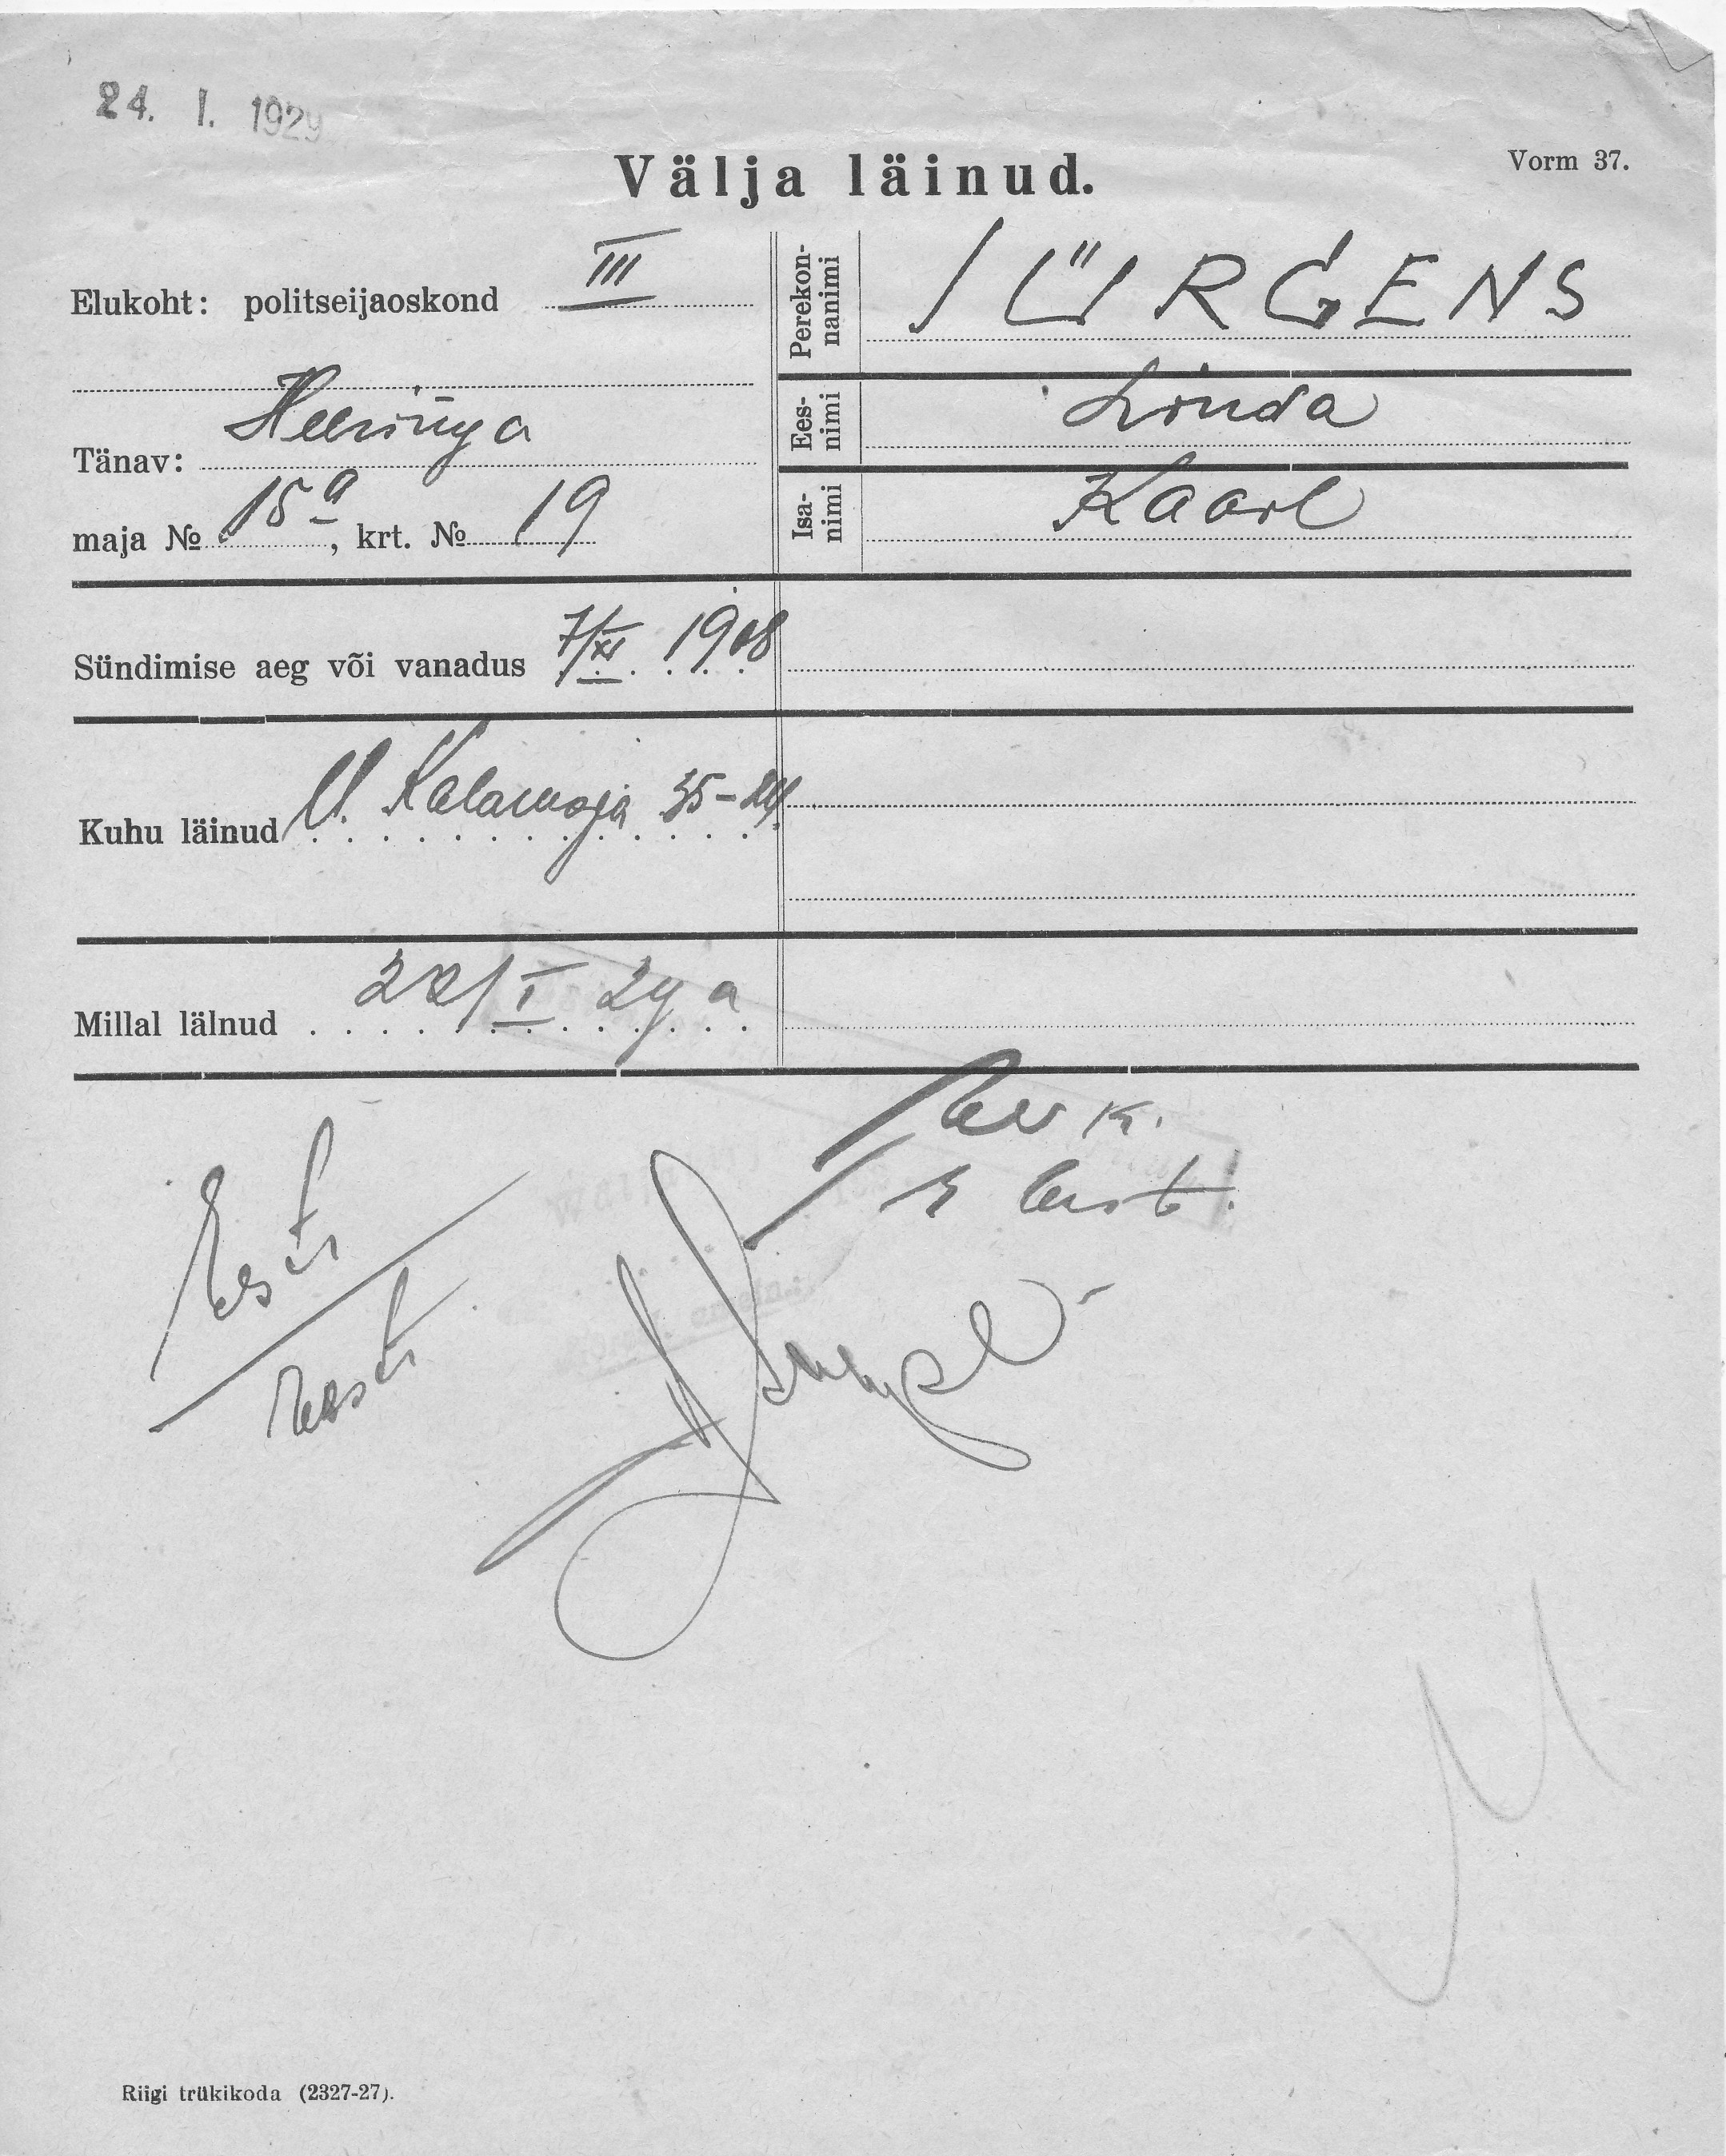 24. I. 1929
Välja läinud.
Vorm 37.
Elukoht: politseijaoskond III
Tänav: Heeringa
maja № 15a, krt. № 19
Perekon-
nanimi
JÜRGENS
Ees-
nimi
Linda
Isa-
nimi
Kaarl
Sündimise aeg või vanadus 7/XI 1908
Kuhu läinud V. Kalamaja 35-24
Millal lälnud 22/I 29 a
Eesti
eesti
Riigi trükikoda (2327-27).